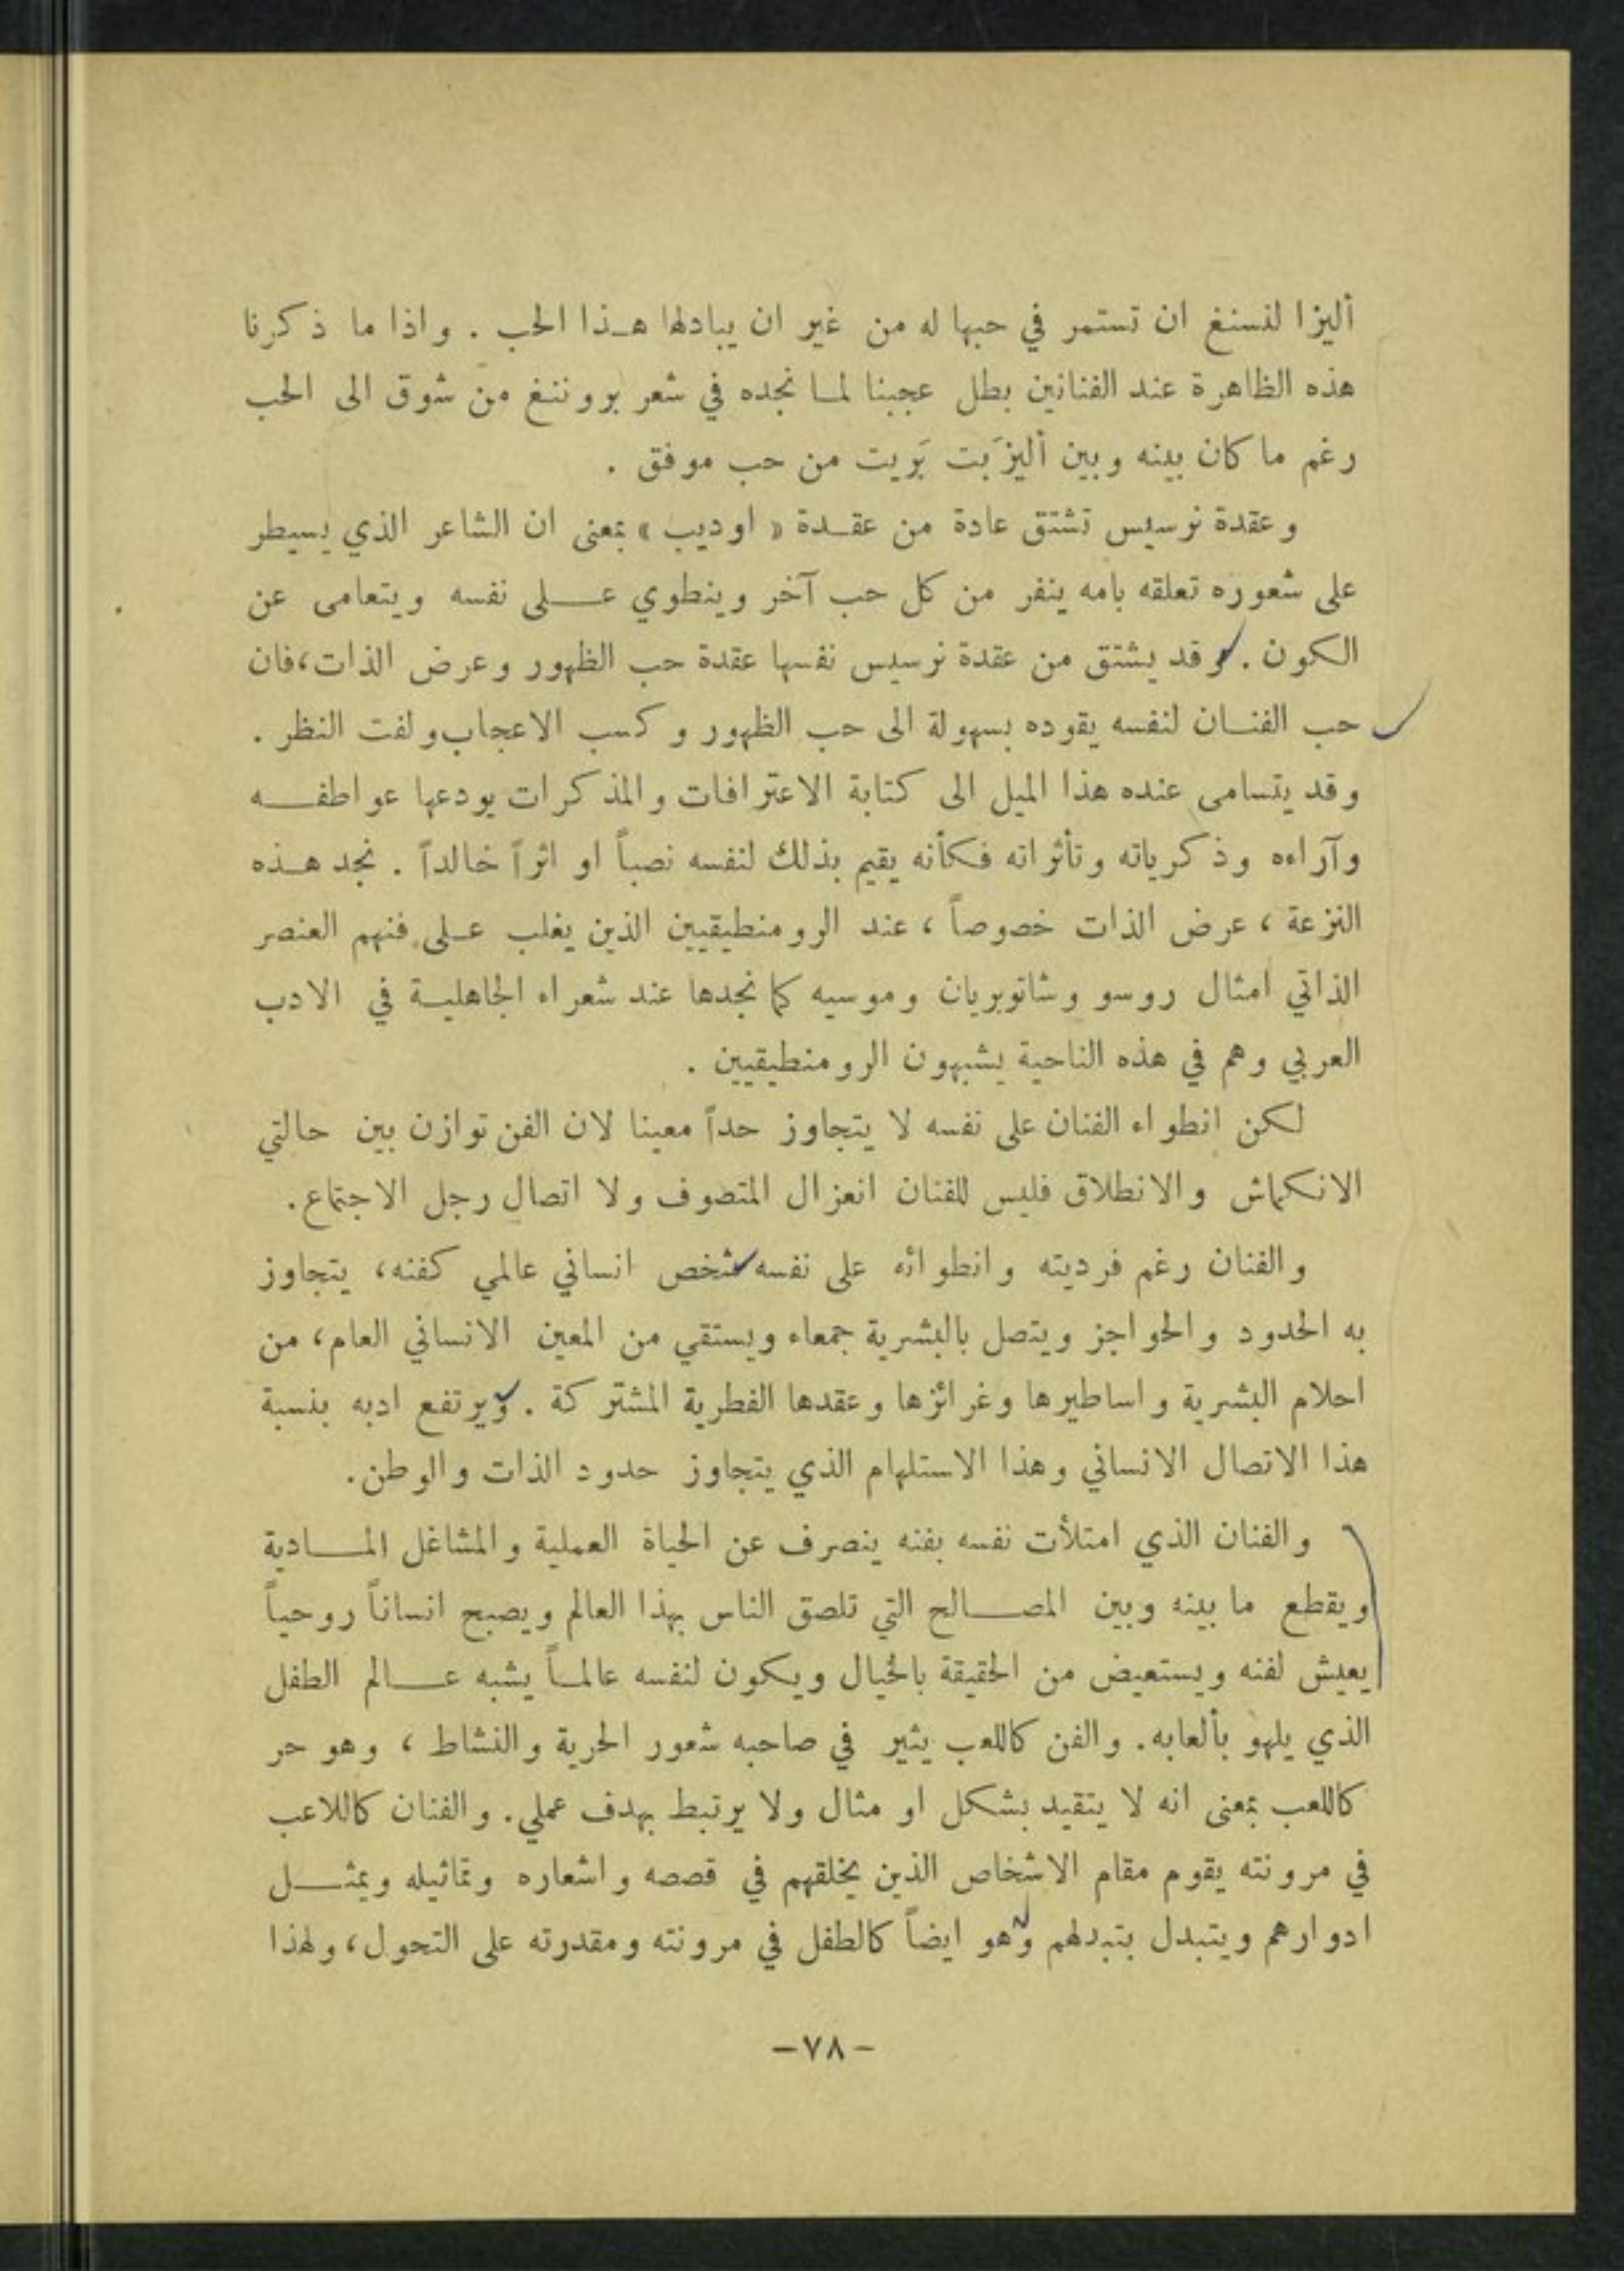 أليزا لنسنغ ان تستمر في حبها له من غير ان يبادلها هذا الحب . واذا ما ذكرنا
هذه الظاهرة عند الفنانين بطل عجبنا لما نجده في شعر بروننغ من شوق الى الحب
رغم ما كان بينه وبين أليزَبت بَريت من حب موفق .
وعقدة نرسيس تشتق عادة من عقدة « اوديب » بمعنى ان الشاعر الذي يسيطر
على شعوره تعلقه بامه ينفر من كل حب آخر وينطوي على نفسه ويتعامى عن
الكون . وقد يشتق من عقدة نرسيس نفسها عقدة حب الظهور وعرض الذات، فان
حب الفنان لنفسه يقوده بسهولة الى حب الظهور وكسب الاعجاب ولفت النظر .
وقد يتسامى عنده هذا الميل الى كتابة الاعترافات والمذكرات يودعها عواطفه
وآراءه وذكرياته وتأثراته فكأنه يقيم بذلك لنفسه نصباً او اثراً خالداً . نجد هذه
النزعة ، عرض الذات خصوصاً ، عند الرومنطيقيين الذين يغلب على فنهم العنصر
الذاتي امثال روسو وشاتوبريان وموسيه كما نجدها عند شعراء الجاهلية في الادب
العربي وهم في هذه الناحية يشبهون الرومنطيقيين .
لكن انطواء الفنان على نفسه لا يتجاوز حداً معينا لان الفن توازن بين حالتي
الانكماش والانطلاق فليس للفنان انعزال المتصوف ولا اتصال رجل الاجتماع.
والفنان رغم فرديته وانطوائه على نفسه شخص انساني عالمي كفنه، يتجاوز
به الحدود والحواجز ويتصل بالبشرية جمعاء ويستقي من المعين الانساني العام، من
احلام البشرية واساطيرها وغرائزها وعقدها الفطرية المشتركة . ويرتفع ادبه بنسبة
هذا الاتصال الانساني وهذا الاستلهام الذي يتجاوز حدود الذات والوطن.
والفنان الذي امتلأت نفسه بفنه ينصرف عن الحياة العملية والمشاغل المادية
ويقطع ما بينه وبين المصالح التي تلصق الناس بهذا العالم ويصبح انساناً روحياً
يعيش لفنه ويستعيض من الحقيقة بالخيال ويكون لنفسه عالماً يشبه عالم الطفل
الذي يلهو بألعابه. والفن كاللعب يثير في صاحبه شعور الحرية والنشاط ، وهو حر
كاللعب بمعنى انه لا يتقيد بشكل او مثال ولا يرتبط بهدف عملي. والفنان كاللاعب
في مرونته يقوم مقام الاشخاص الذين يخلقهم في قصصه واشعاره وتماثيله ويمثل
ادوارهم ويتبدل بتبدلهم وهو ايضاً كالطفل في مرونته ومقدرته على التحول، ولهذا
-٧٨-